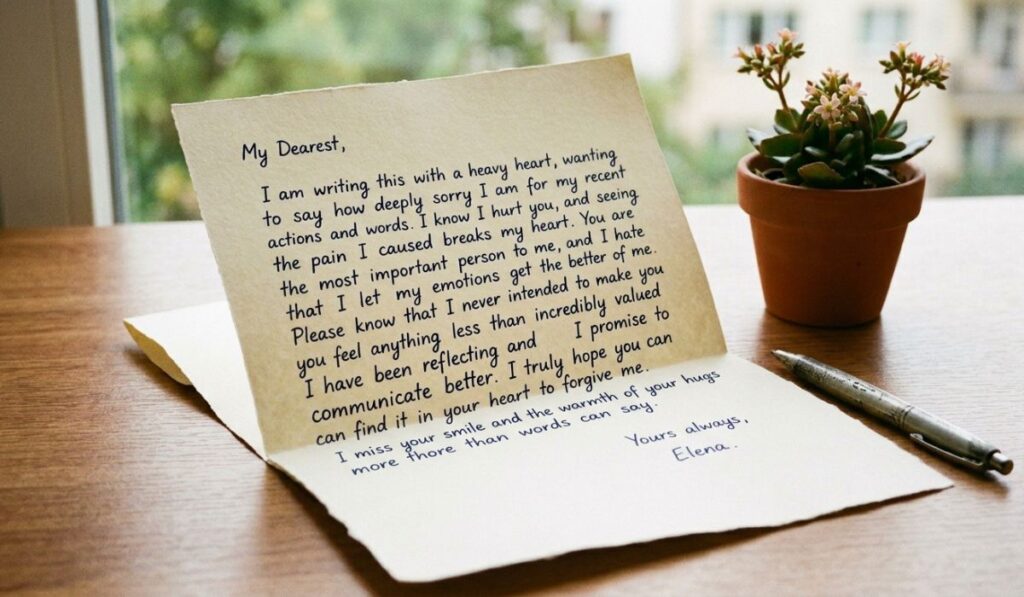 My Dearest,
I am writing this with a heavy heart, wanting
to say how deeply sorry I am for my recent
actions and words. I know I hurt you, and seeing
the pain I caused breaks my heart. You are
the most important person to me, and I hate
that I let my emotions get the better of me.
Please know that I never intended to make you
you feel anything less than incredibly valued
I have been reflecting and I promise to
communicate better. I truly hope you can
can find it in your heart to forgive me.
I miss your smile and the warmth of your hugs
more thore than words can say.
Yours always,
Elena.